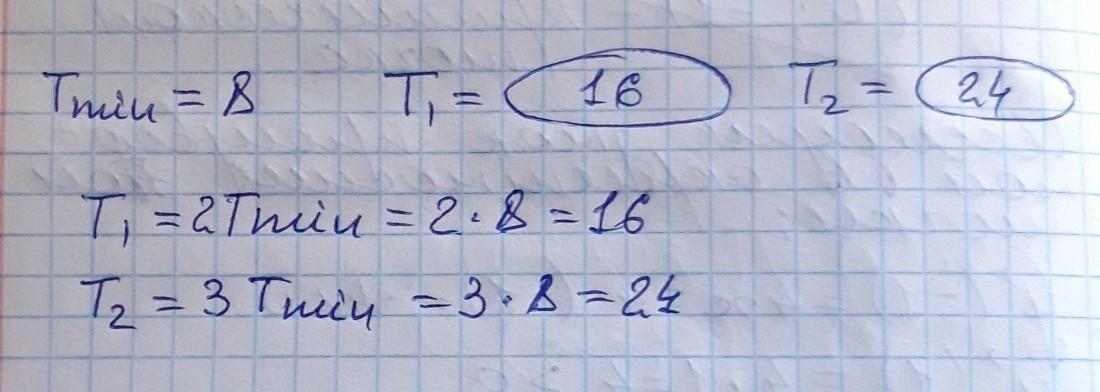 Tmin = 8 T₁ = 16 T₂ = 24
T₁ = 2Tmin = 2 · 8 = 16
T₂ = 3 Tmin = 3 · 8 = 24